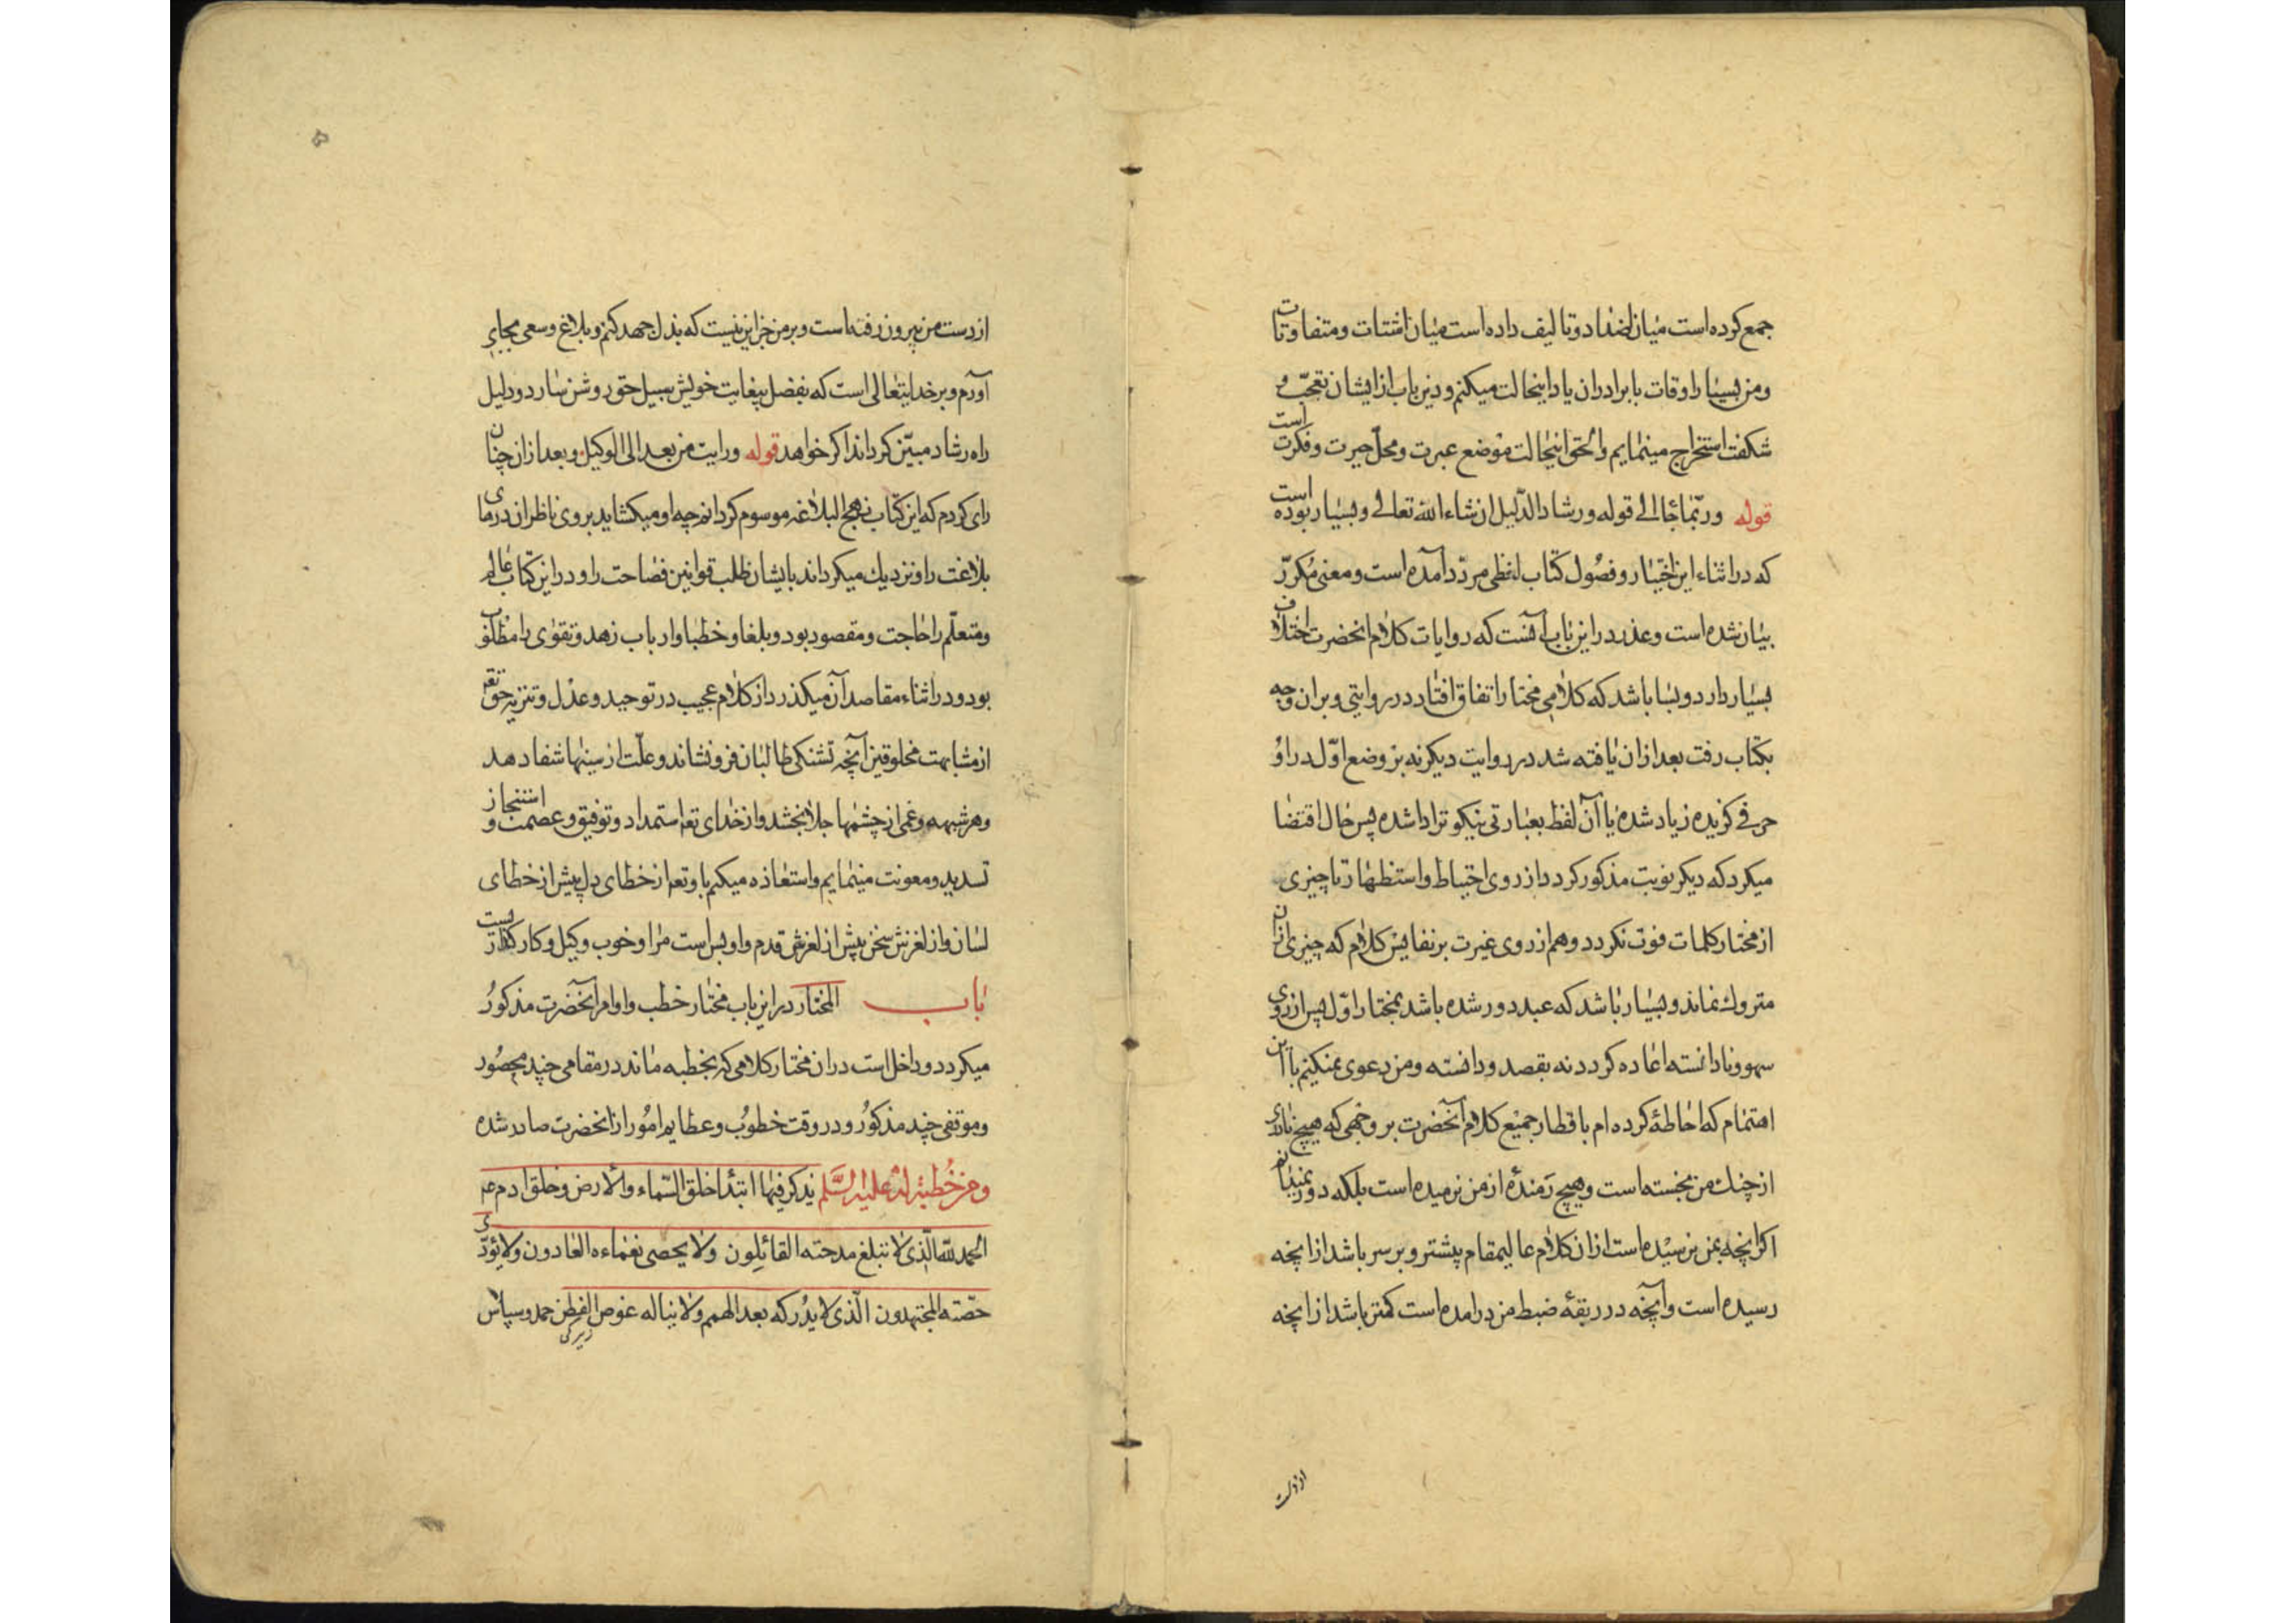 جمع کرده است میان اضداد و تالیف داده است میان اشتات و متفاوتات
و من بسیار اوقات با برادران یاد اینحالت میکنم و درین باب از ایشان تعجّب و
شکفت استخراج مینمایم والحق اینحالت موضع عبرت و محلّ حیرت و فکرت است
قوله وربّما جا الی قوله و رشاد الدّلیل ان شاء الله تعالی و بسیار بوده است
که در اثناء این اختیار و فصول کتاب لفظی مردّد آمده است و معنی مکرّر
بیان شده است و عذر در این باب آنست که روایات کلام انحضرت اختلاف
بسیار دارد و بسا باشد که کلامی مختار اتفاق افتاد در روایتی و بران وجه
بکتاب رفت بعد ازان یافته شد در روایت دیکر نه بر وضع اوّل در او
حرفی کزیده زیاد شده یا آن لفظ بعبارتی نیکوتر ادا شده پس حال اقتضا
میکرد که دیکر نوبت مذکور کردد از روی احتیاط و استظهار تا چیزی
از مختار کلمات فوت نکردد و هم از روی غیرت بر نفایس کلام که چیزی ازان
متروک نماند و بسیار باشد که عهد دور شده باشد بمختار اوّل پس از روی
سهو و نادانسته اعاده کردد نه بقصد و دانسته و من دعوی نمیکنم با این
اهتمام که احاطه کرده ام باقطار جمیع کلام آنحضرت بر وجهی که هیچ
از چنک من نجسته است و هیچ رمندهٔ از من نرمیده است بلکه دور نمیدانم
اکر انچه بمن نرسیده است ازان کلام عالیمقام بیشتر و بر سر باشد از انچه
رسیده است و آنچه در ربقهٔ ضبط من درامده است کمتر باشد از انچه
از دست
از دست من بیرون رفته است و بر من جز این نیست که بذل جهد کنم و بلاغ وسعی بجای
آورم و بر خدایتعالی است که بفضل بیغایت خویش سبیل حق روشن سازد و دلیل
راه رشاد مبیّن کرداند اکر خواهد قوله ورایت من بعد الی الوکیل و بعد ازان چنان
رای کردم که این کتاب نهج البلاغه موسوم کردانم چه او میکشاید بروی ناظران درهای
بلاغت را و نزدیك میکرداند بایشان طلب قوانین فصاحت را و در این کتاب عالم
و متعلّم را حاجت و مقصود بود و بلغا و خطبا و ارباب زهد و تقوی را مطلوب
بود و در اثناء مقاصد آن میکذرد از کلام عجیب در توحید و عدل و تنزیه حق تعم
از مشابهت مخلوقین آنچه تشنکی طالبان فرو نشاند و علّت از سینها شفا دهد
و هر شبهه و غمی از چشمها جلا بخشد و از خدای تعم استمداد و توفیق و عصمت و استنجاز
تسدید و معونت مینمایم و استعاذه میکنم باو تعم از خطای دل پیش از خطای
لسان و از لغزش سخن پیش از لغزش قدم و او بس است مرا و خوب وکیل و کارکذار یست
باب المختار در این باب مختار خطب و اوامر آنحضرت مذکور
میکردد و داخل است دران مختار کلامی که بخطبه ماند در مقامی چند محصور
و موقفی چند مذکور و در وقت خطوب و عظایم امور از انحضرت صادر شده
و من خطبة له علیه السّلم یذکر فیها ابتدا خلق السّماء والارض و خلق ادم عم
الحمد للّه الّذی لا تبلغ مدحته القائلون ولا یحصی نعماءه العادون ولا یؤدّی
حقّته المجتهدون الّذی لا یدرکه بعد الهمم ولا یناله غوص الفطن حمد و سپاس
زیرکی